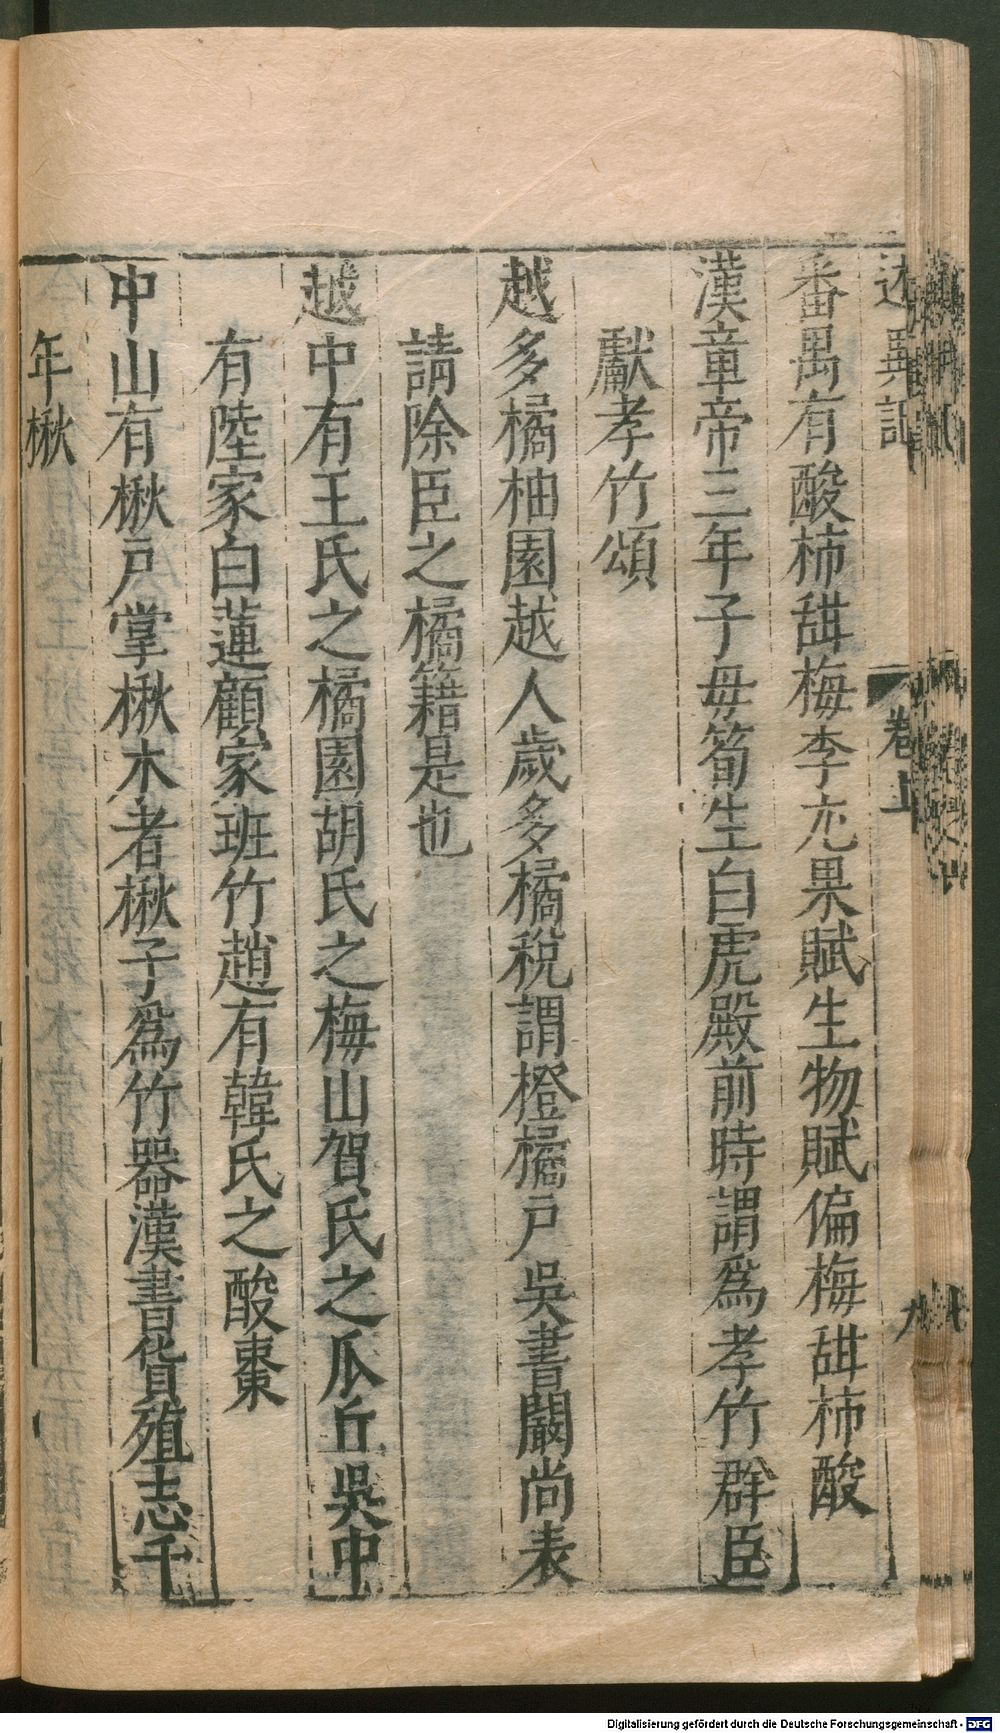 述異記 卷上 九
番禺有酸柿甜梅李尤果賦生物賦偏梅甜柿酸
漢章帝三年子母筍生白虎殿前時謂為孝竹群臣
獻孝竹頌
越多橘柚園越人歲多橘稅謂橙橘戶吳書闞尚表
請除臣之橘籍是也
越中有王氏之橘園胡氏之梅山賀氏之瓜丘吳中
有陸家白蓮顧家班竹趙有韓氏之酸棗
中山有楸戶掌楸木者楸子為竹器漢書貨殖志千
年楸
Digitalisierung gefördert durch die Deutsche Forschungsgemeinschaft - DFG